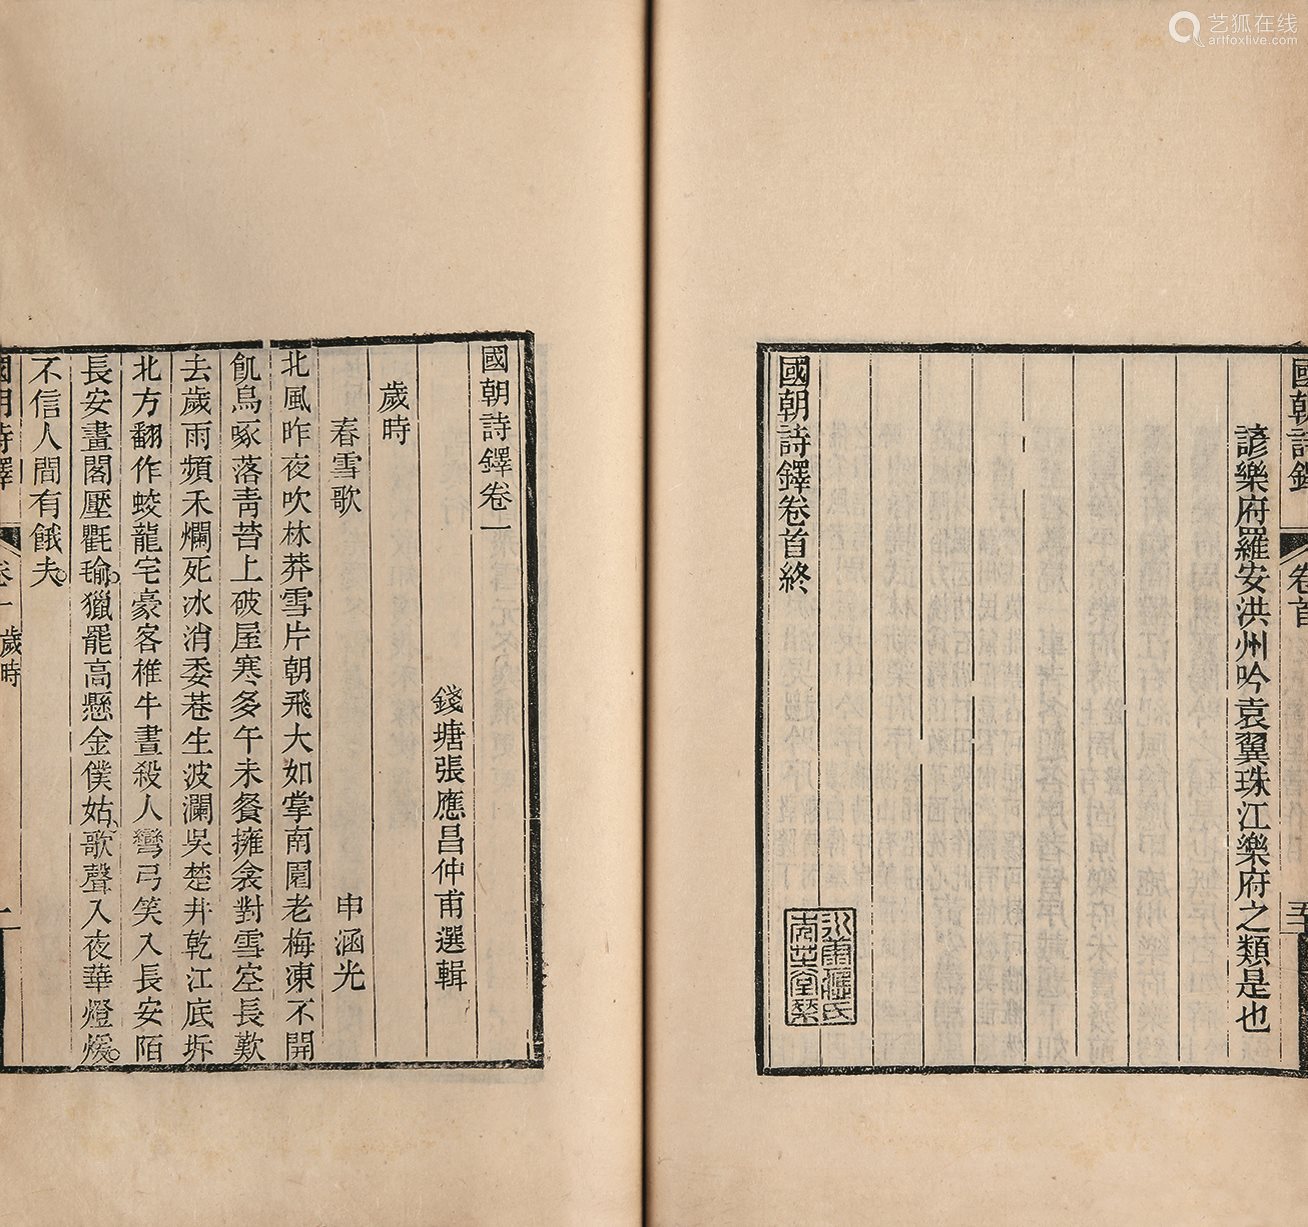 艺狐在线
artfoxlive.com
國朝詩鐸
卷首
五
諺樂府羅安洪州吟袁翼珠江樂府之類是也
國朝詩鐸卷首終
永康應氏
秀芷堂栞
國朝詩鐸卷一
錢塘張應昌仲甫選輯
歲時
春雪歌
申涵光
北風昨夜吹林莽雪片朝飛大如掌南園老梅凍不開
飢鳥啄落青苔上破屋寒多午未餐擁衾對雪空長歎
去歲雨頻禾爛死冰消委巷生波瀾吳楚井乾江底坼
北方翻作蛟龍宅豪客椎牛晝殺人彎弓笑入長安陌
長安畫閣壓氍毹獵罷高懸金僕姑歌聲入夜華燈煖
不信人間有餓夫
國朝詩鐸
卷一
歲時
一